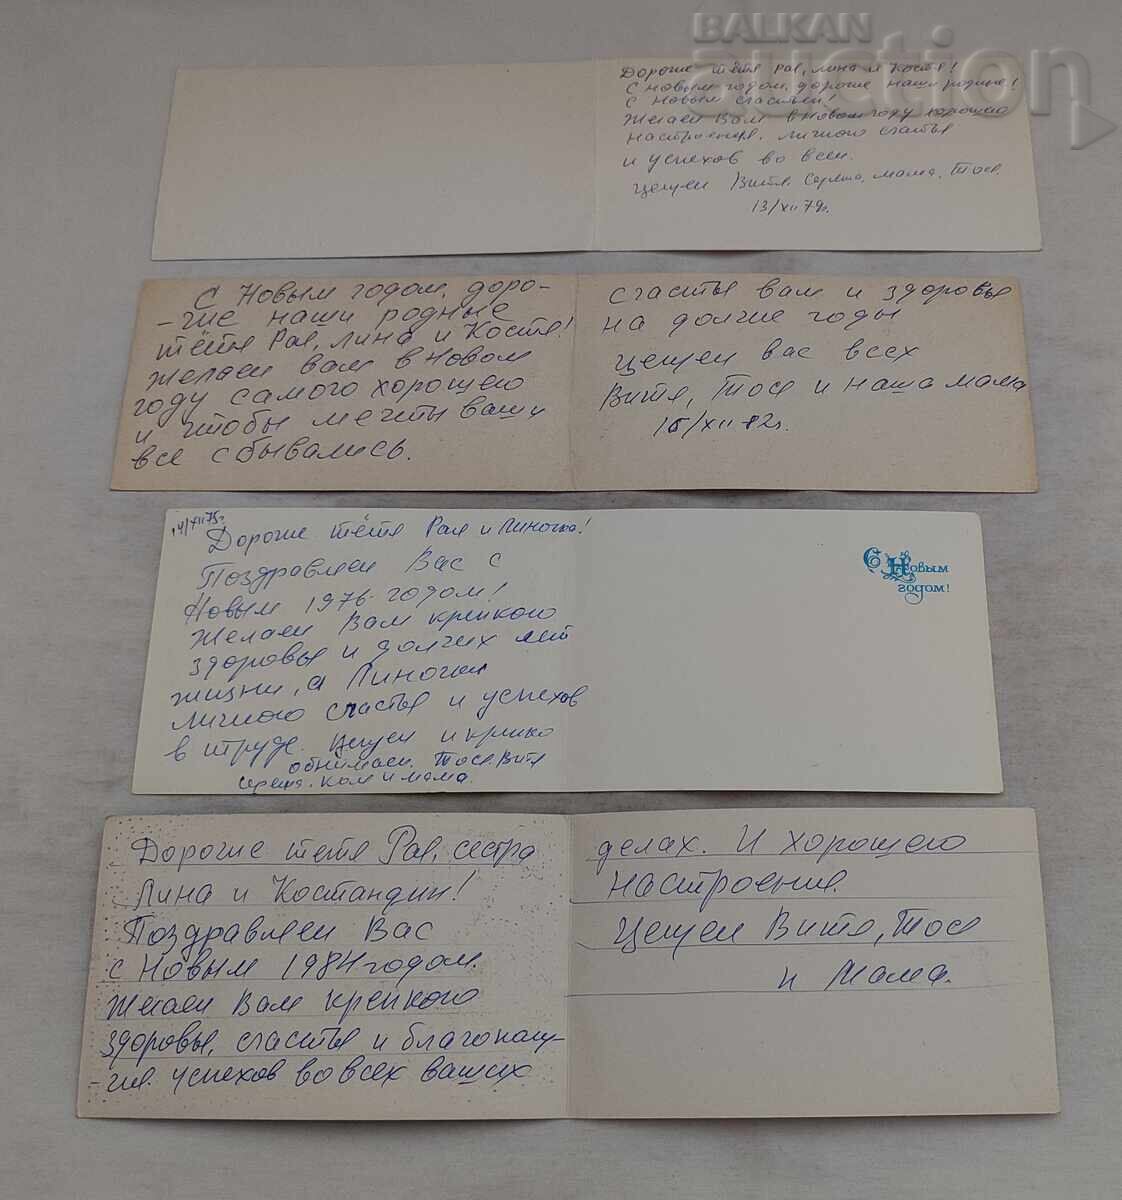 BALKAN
auction
Дорогие тётя Рая, Лина и Костя!
С Новым годом, дорогие наши родные!
С Новым счастьем!
Желаем Вам в Новом году хорошего
настроения, личного счастья
и успехов во всем.
Целуем Витя, Сережа, мама, Тося.
13/XII 79г.
С Новым годом, доро-
-гие наши родные
тётя Рая, Лина и Костя!
Желаем вам в Новом
году самого хорошего
и чтобы мечты ваши
все сбывались.
счастья вам и здоровья
на долгие годы
Целуем вас всех
Витя, Тося и наша мама
/XII 82г.
14/XII 75г.
Дорогие тётя Рая и Линочка!
Поздравляем Вас с
Новым 1976 годом!
Желаем Вам крепкого
здоровья и долгих лет
жизни, а Линочки
личного счастья и успехов
в труде. Целуем и крепко
обнимаем. Тося, Витя
Сережа, Коля и мама.
С Новым
годом!
Дорогие тетя Рая, сестра
Лина и Костандин!
Поздравляем Вас
с Новым 1984 годом.
Желаем Вам крепкого
здоровья, счастья и благополу-
-чия. успехов во всех ваших
делах. И хорошего
настроения.
Целуем Витя, Тося
и Мама.